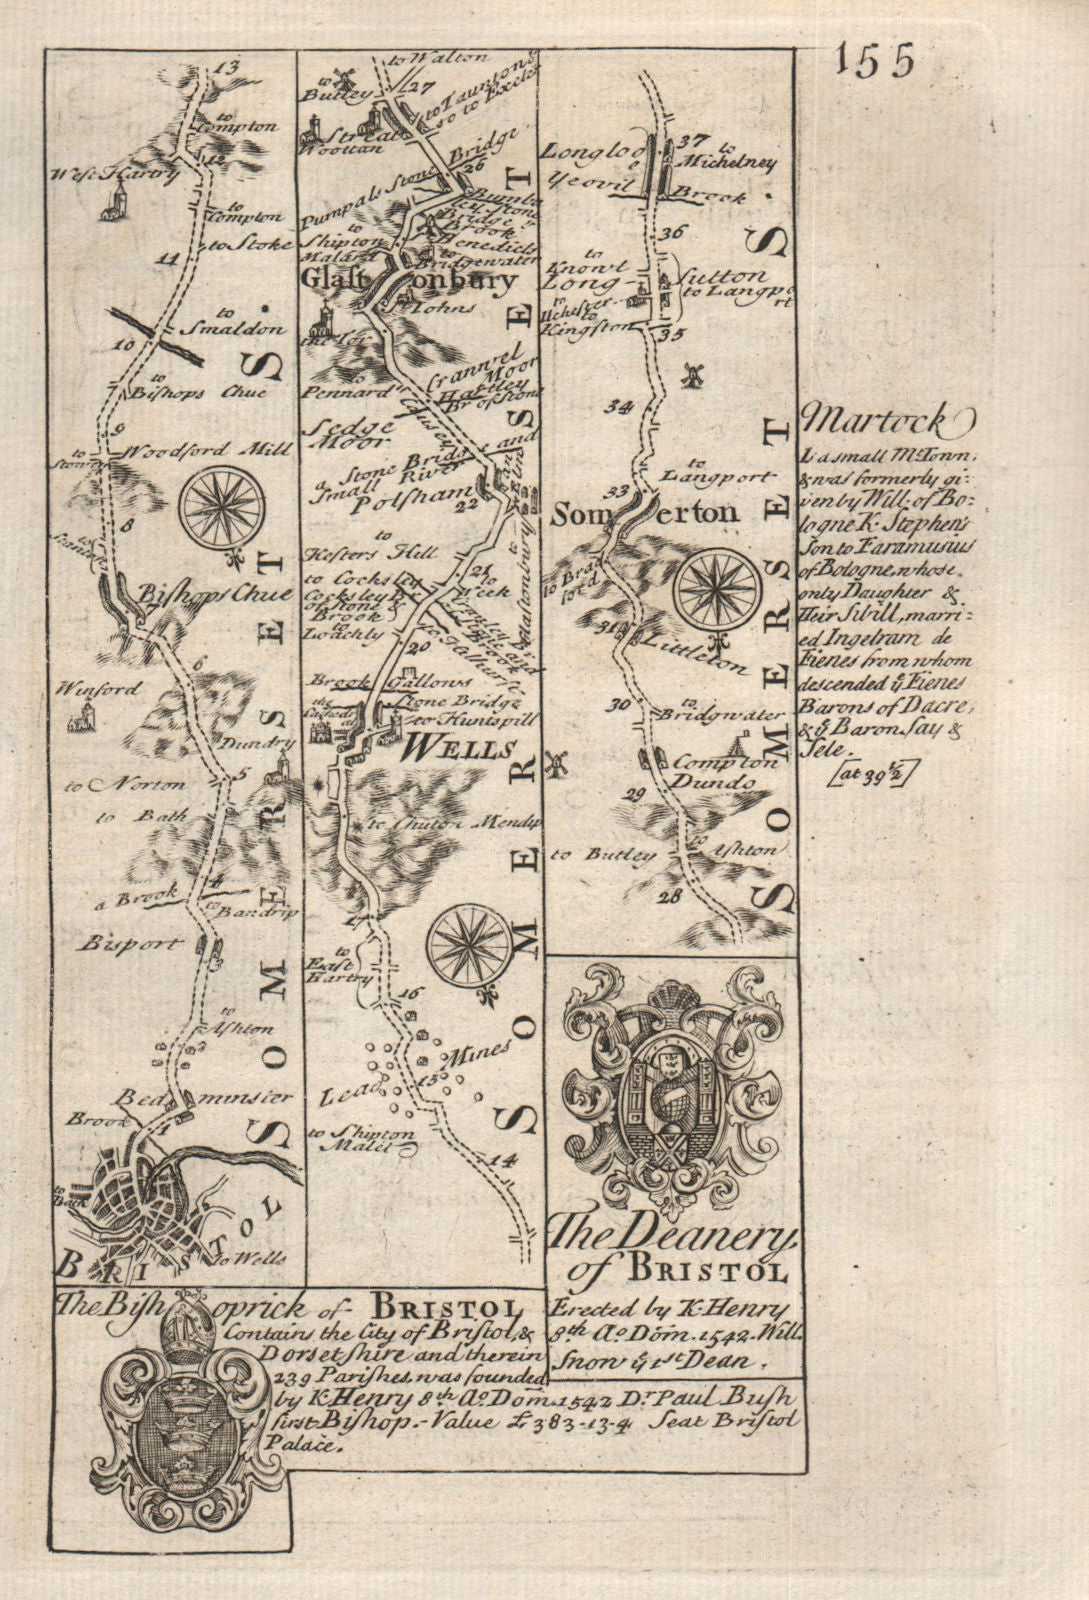 155
13
to
Compton
12
West Hartry
to
Compton
to Stoke
11
to
Smaldon
10
to
Bishops Chue
9
Woodford Mill
to
Stowey
8
to
Bishops Chue
6
Winford
Dundry
5
to Norton
to Bath
4
a Brook
to
Bandrip
Bisport
3
to
Ashton
2
Bedminster
Brook
1
to
Bath
BRISTOL
to Wells
SOMERSETS.
to Walton
to
Butley
27
to Taunton &
so to Exeter
Street
Woottan
Bridge
26
Pumpals Stone
Bumbaley Stone
Bridge
Brook
to
Shipton
Malard
Benedicts
to
Bridgewater
Glastonbury
St Johns
the Tor
to
Pennard
Crannel
Moor
Hartley
Br of Stone
Causey
Sedge
Moor
and
a Stone Bridg
Small River
Polsham
22
to
Kesters Hill
21
to
Week
to Cocksley
Cocksley Br
of Stone &
Brook
to
Loachly
20
Brook
Gallows
Stone Bridge
the
Cathedral
to Huntspill
WELLS
to Chuton Mendip
17
to
East
Hartry
16
Lead Mines
15
to Shipton
Malet
14
SOMERSETS
37
to
Michelney
Longloo
Yeovil
Brook
36
to
Know'l
Long
Sutton
to Langport
to
Ilchester
to
Kingston
35
34
to
Langport
33
Somerton
to Bradford
31
Littleton
30
to
Bridgwater
Compton
Dundo
29
to Butley
to
Ashton
28
SOMERSETS
Martock
Is a small Mt. Town,
& was formerly gi-
ven by Will. of Bo-
logne K. Stephen's
Son to Faramusius
of Bologne, whose
only Daughter &
Heir Sibill, marri-
ed Ingelram de
Fienes from whom
descended ye Fienes
Barons of Dacre,
& ye Baron Say &
Sele.
[at 39 1/2]
The Deanery
of BRISTOL
Erected by K. Henry
8th Ao. Dom. 1542. Will.
Snow ye 1st Dean.
The Bishoprick of BRISTOL
Contains the City of Bristol, &
Dorsetshire and therein
239 Parishes, was founded
by K. Henry 8th Ao. Dom. 1542 Dr. Paul Bush
first Bishop.- Value £383-13-4 Seat Bristol
Palace.